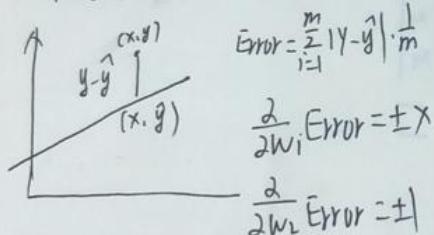 (x,y)
y-ŷ
(x,ŷ)
Error = Σ_{i=1}^{m} |y-ŷ| · 1/m
∂/∂w₁ Error = ±x
∂/∂w₂ Error = ±1